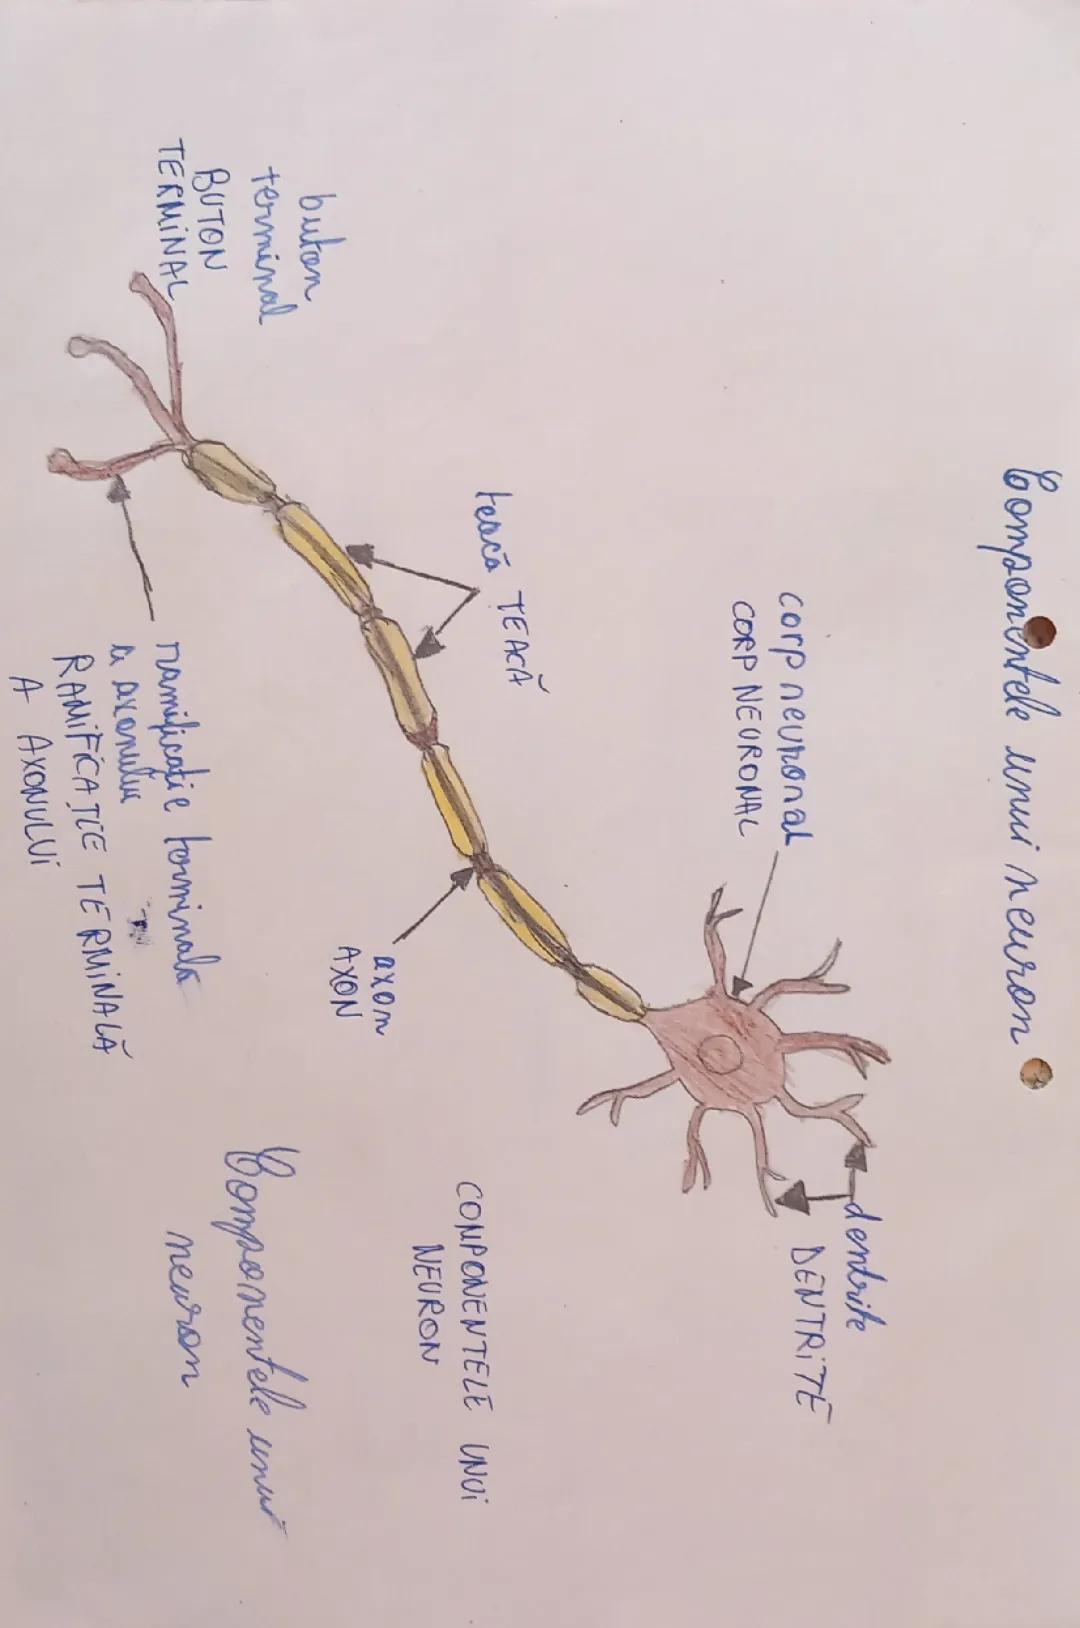 Componentele unui neuron
corp neuronal
CORP NEURONAL
dentrite
DENTRITE
teacă TEACĂ
buton
terminal
BUTON
TERMINAL
axon
AXON
ramificație terminală
a axonului
RAMIFICAȚIE TERMINALĂ
A AXONULUI
COMPONENTELE UNUI
NEURON
Componentele unui
neuron